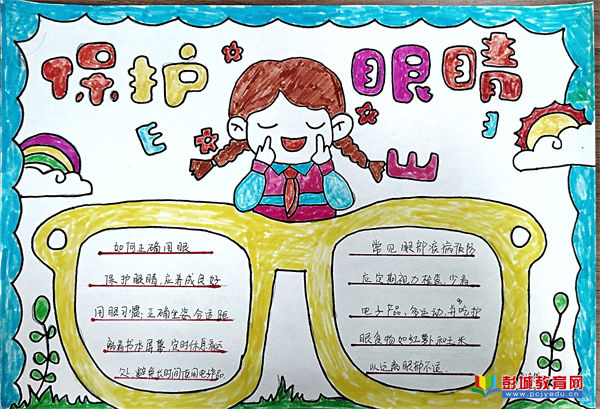 保护眼睛
E
E
E
如何正确用眼
保护眼睛,应养成良好
用眼习惯:正确坐姿,合适距
离看书水屏幕,定时休息远
处,避免长时间使用电子产品
常见眼部疾病预防
应定期视力检查,少看
电子产品,多运动,多吃护
眼食物如红萝卜和玉米
以远离眼部不适
彭城教育网
www.pcjyedu.cn